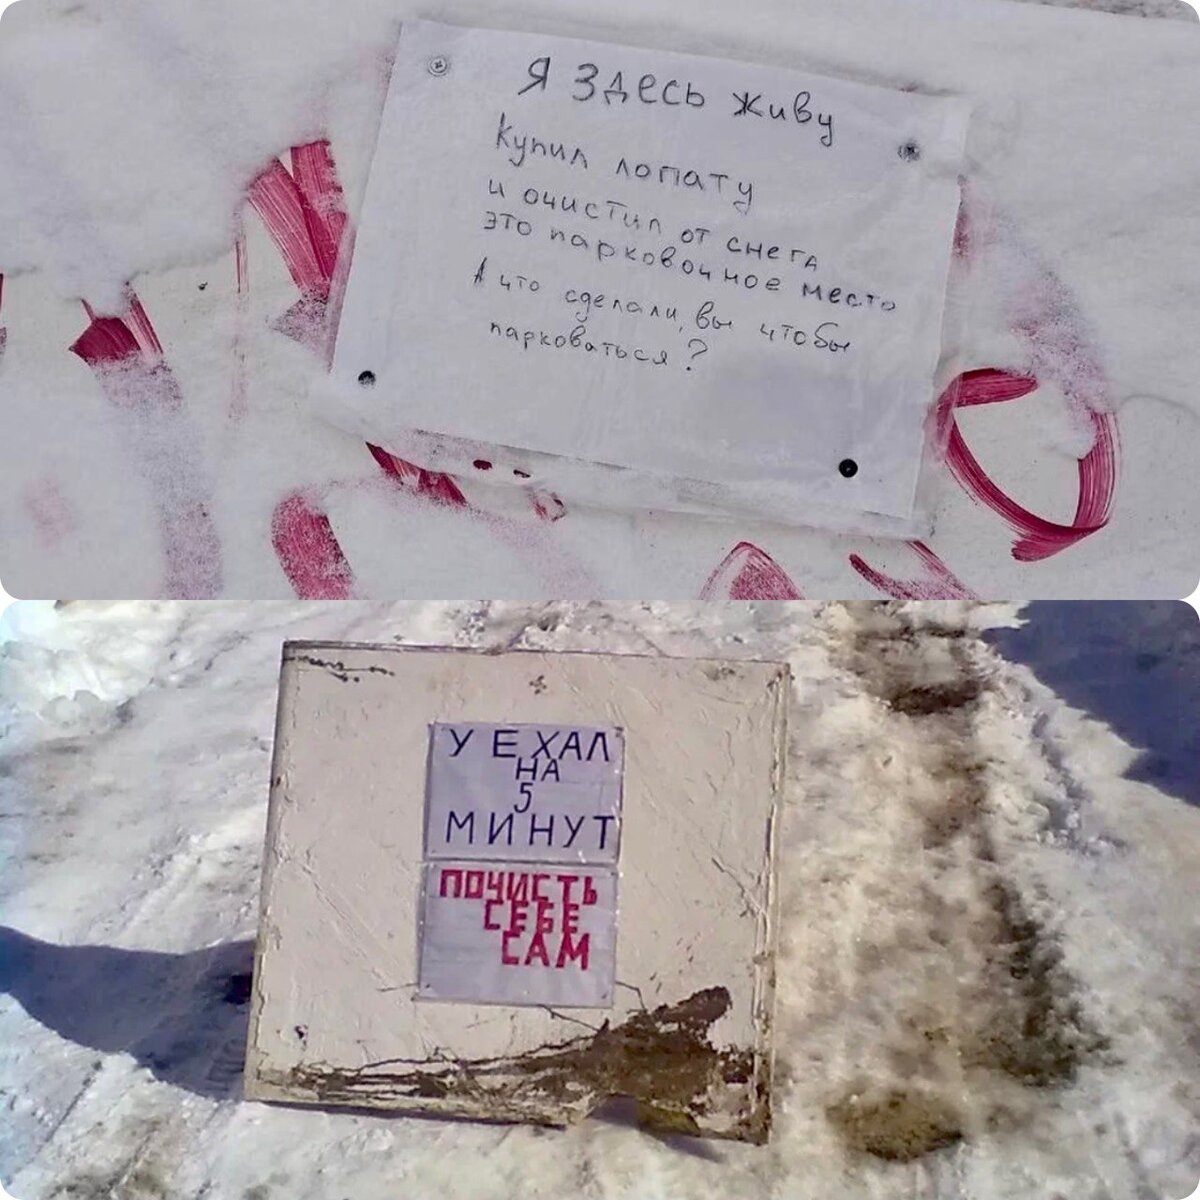 Я здесь живу
Купил лопату
и очистил от снега
это парковочное место
А что сделали, вы чтобы
парковаться?
УЕХАЛ
НА
5
МИНУТ
ПОЧИСТЬ
СЕБЕ
САМ